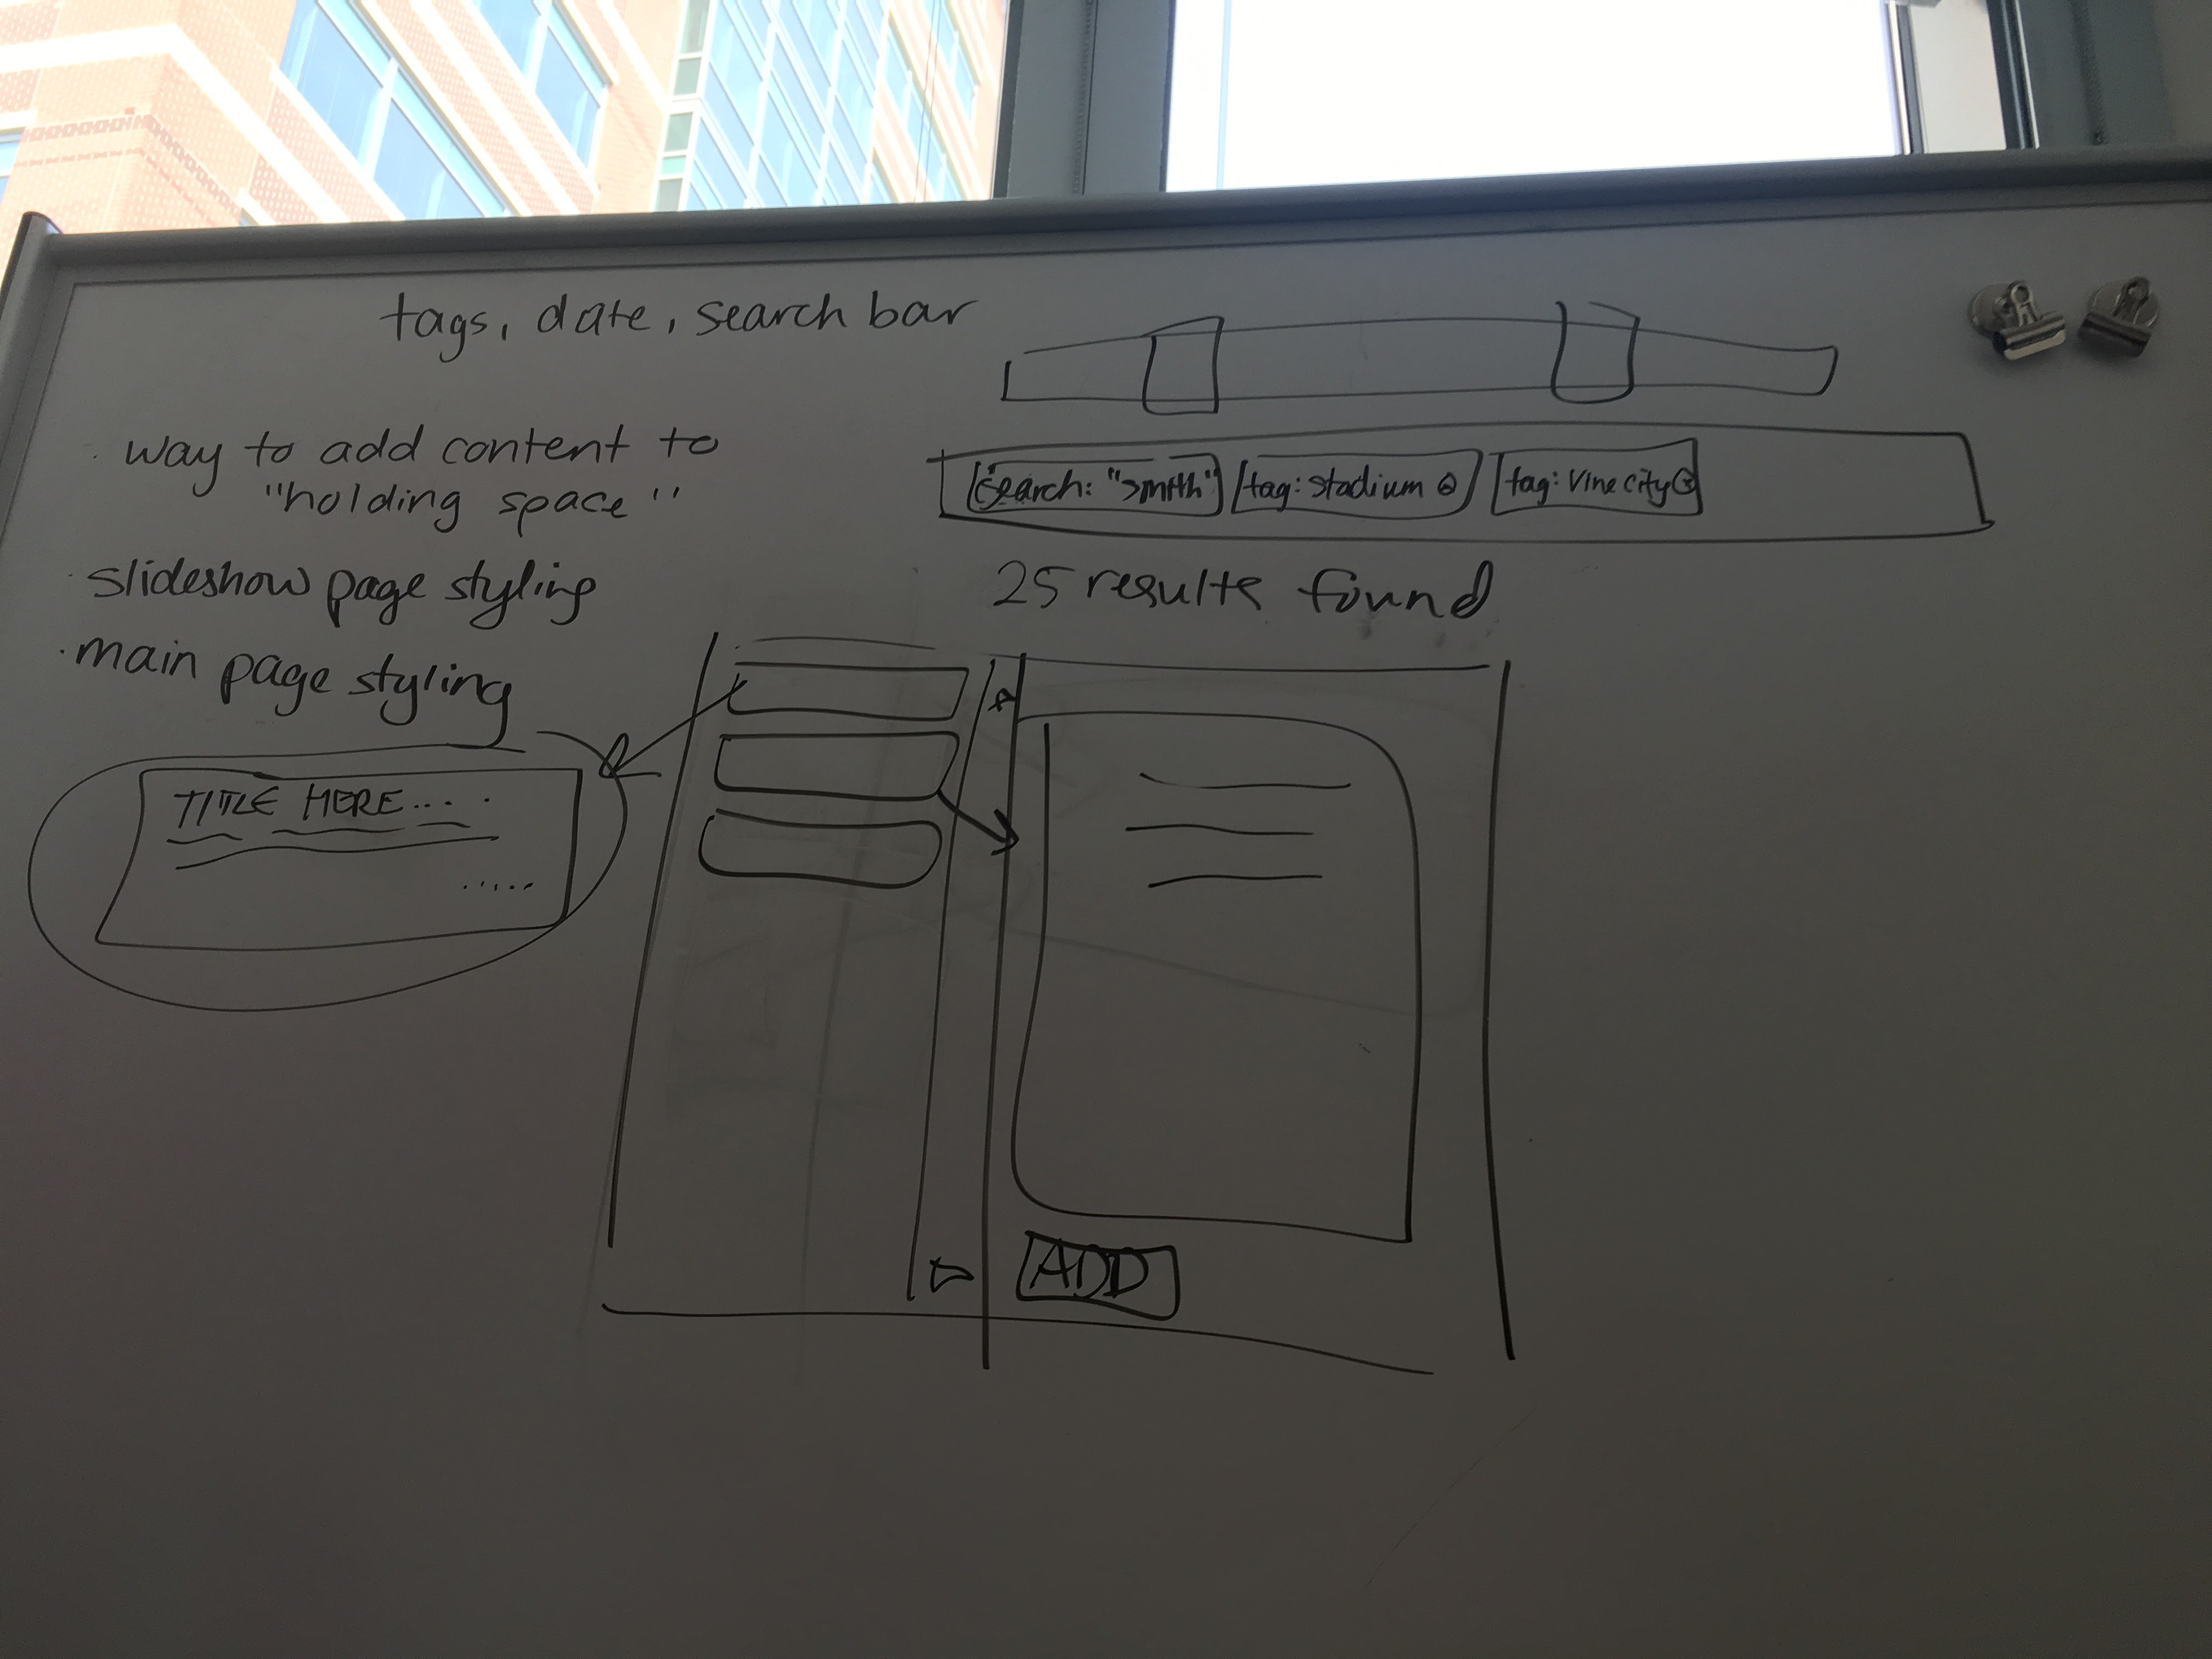 tags, date, search bar
· way to add content to
"holding space"
· slideshow page styling
· main page styling
search: "smith"
tag: stadium ⓧ
tag: Vine city ⓧ
25 results found
TITLE HERE....
ADD